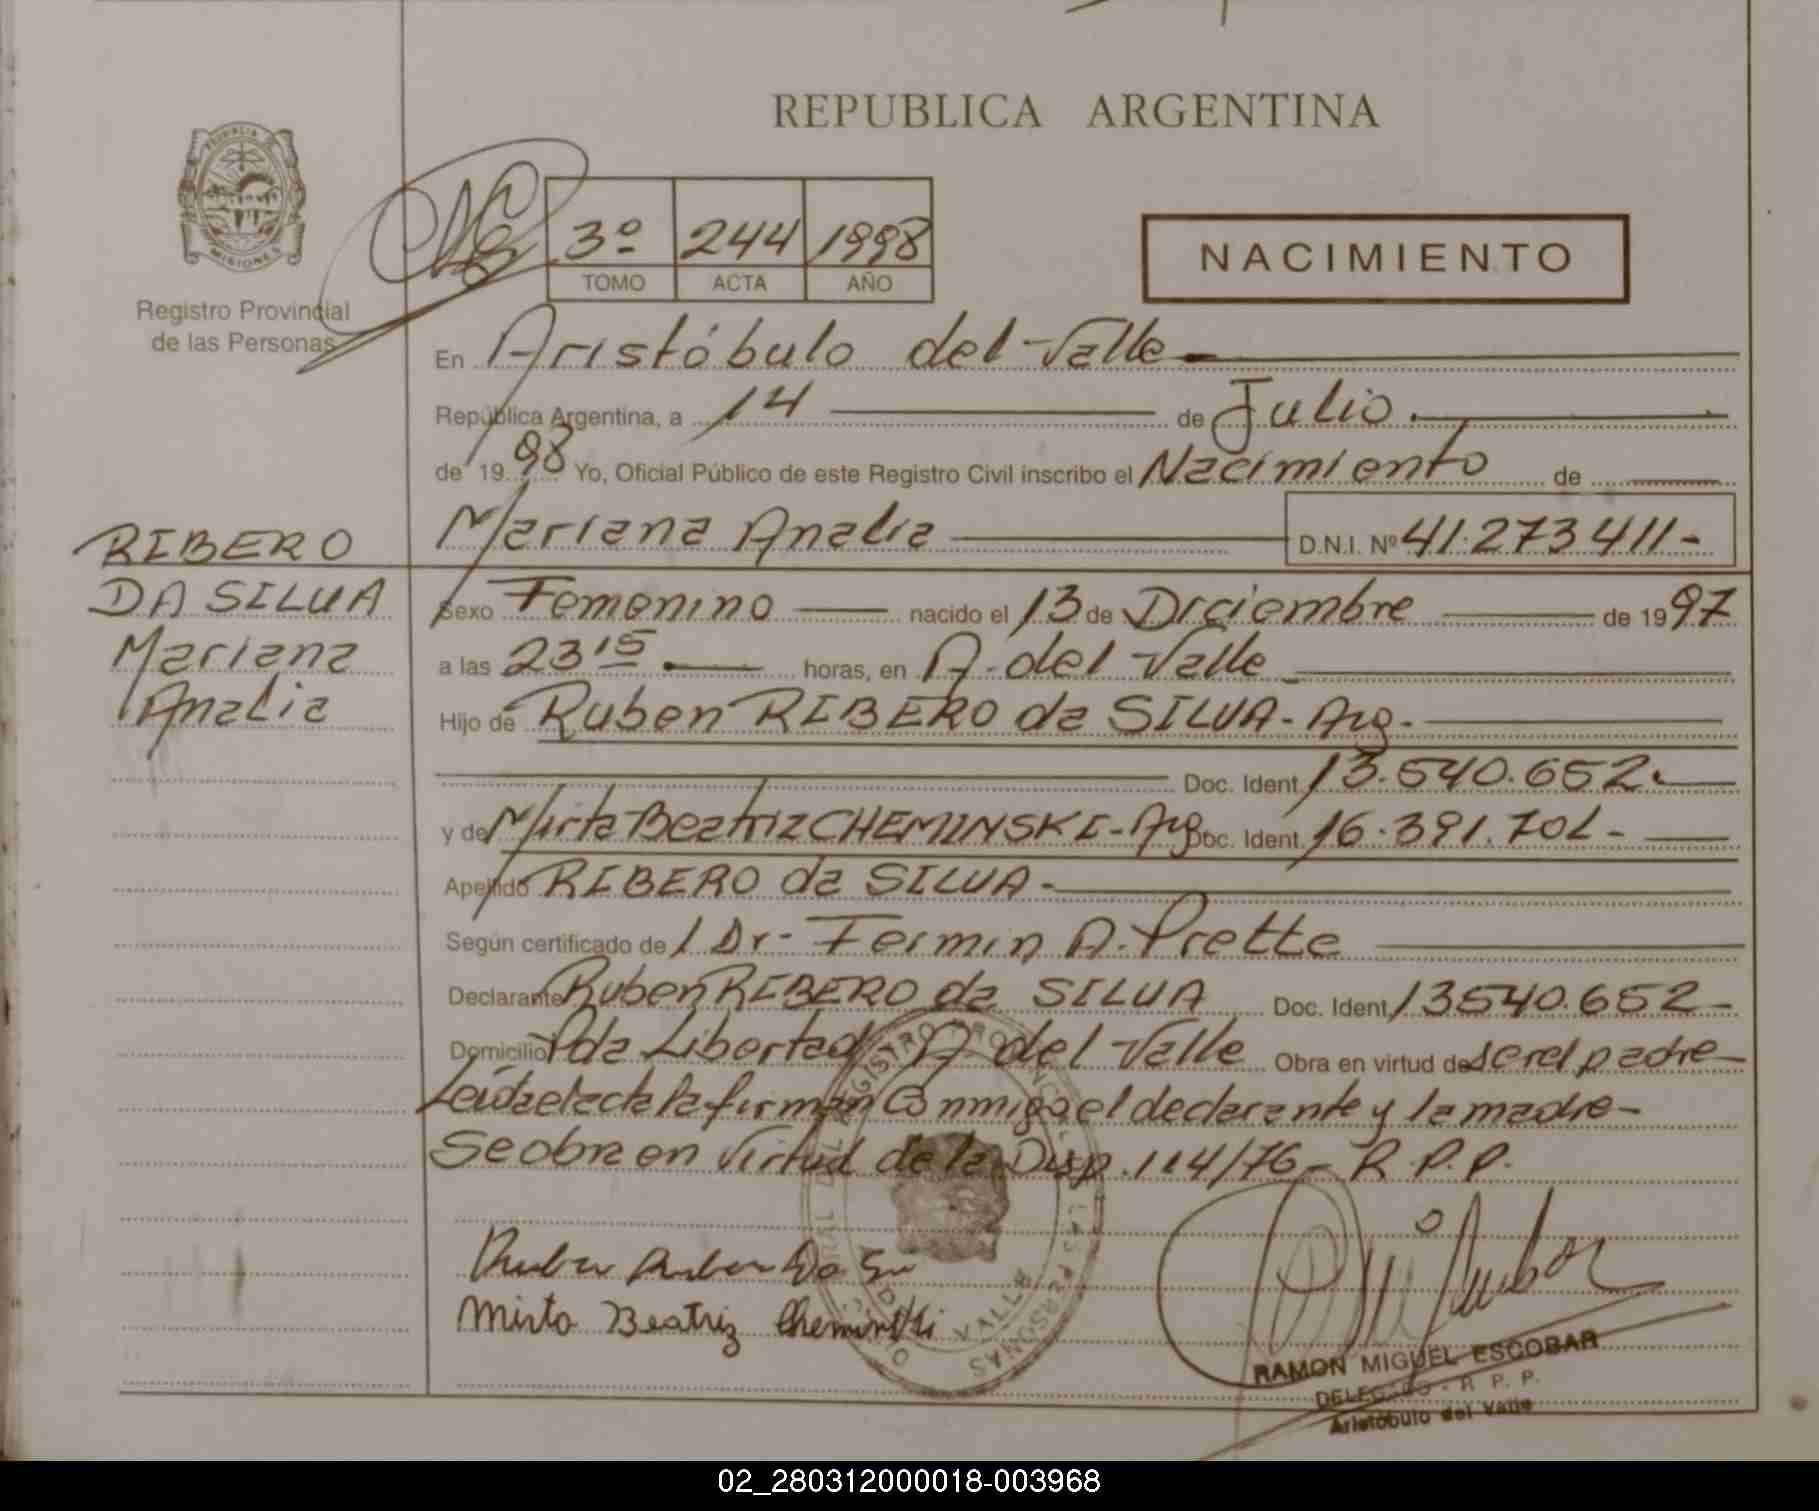 REPUBLICA ARGENTINA
PROVINCIA DE MISIONES
Registro Provincial
de las Personas
3º 244 1998
TOMO ACTA AÑO
NACIMIENTO
En Aristóbulo del Valle
República Argentina, a 14 de Julio.
de 1998 Yo, Oficial Público de este Registro Civil inscribo el Nacimiento de
Mariana Analia D.N.I. Nº 41.273411-
RIBERO
DA SILVA
Mariana
Analia
Sexo Femenino nacido el 13 de Diciembre de 1997
a las 23 15 horas, en A. del Valle
Hijo de Ruben RIBERO da SILVA - Arg -
Doc. Ident. 13.540.652.
y de Mirta Beatriz CHEMINSKI - Arg. Doc. Ident. 16.391.702 -
Apellido RIBERO da SILVA -
Según certificado de / Dr - Fermin A. Prette
Declarante Ruben RIBERO da SILVA Doc. Ident. 13540.652 -
Domicilio Pda Libertad A del Valle Obra en virtud de ser el padre
Leída el acta la firman Conmigo el declarante y la madre -
Se obra en Virtud de la Disp. 114/76 - R.P.P.
Ruben Da
Mirta Beatriz Cheminski
REGISTRO PROVINCIAL DE LAS PERSONAS
DEL VALLE
RAMON MIGUEL ESCOBAR
DELEGADO - R. P. P.
Aristóbulo del Valle
02_280312000018-003968